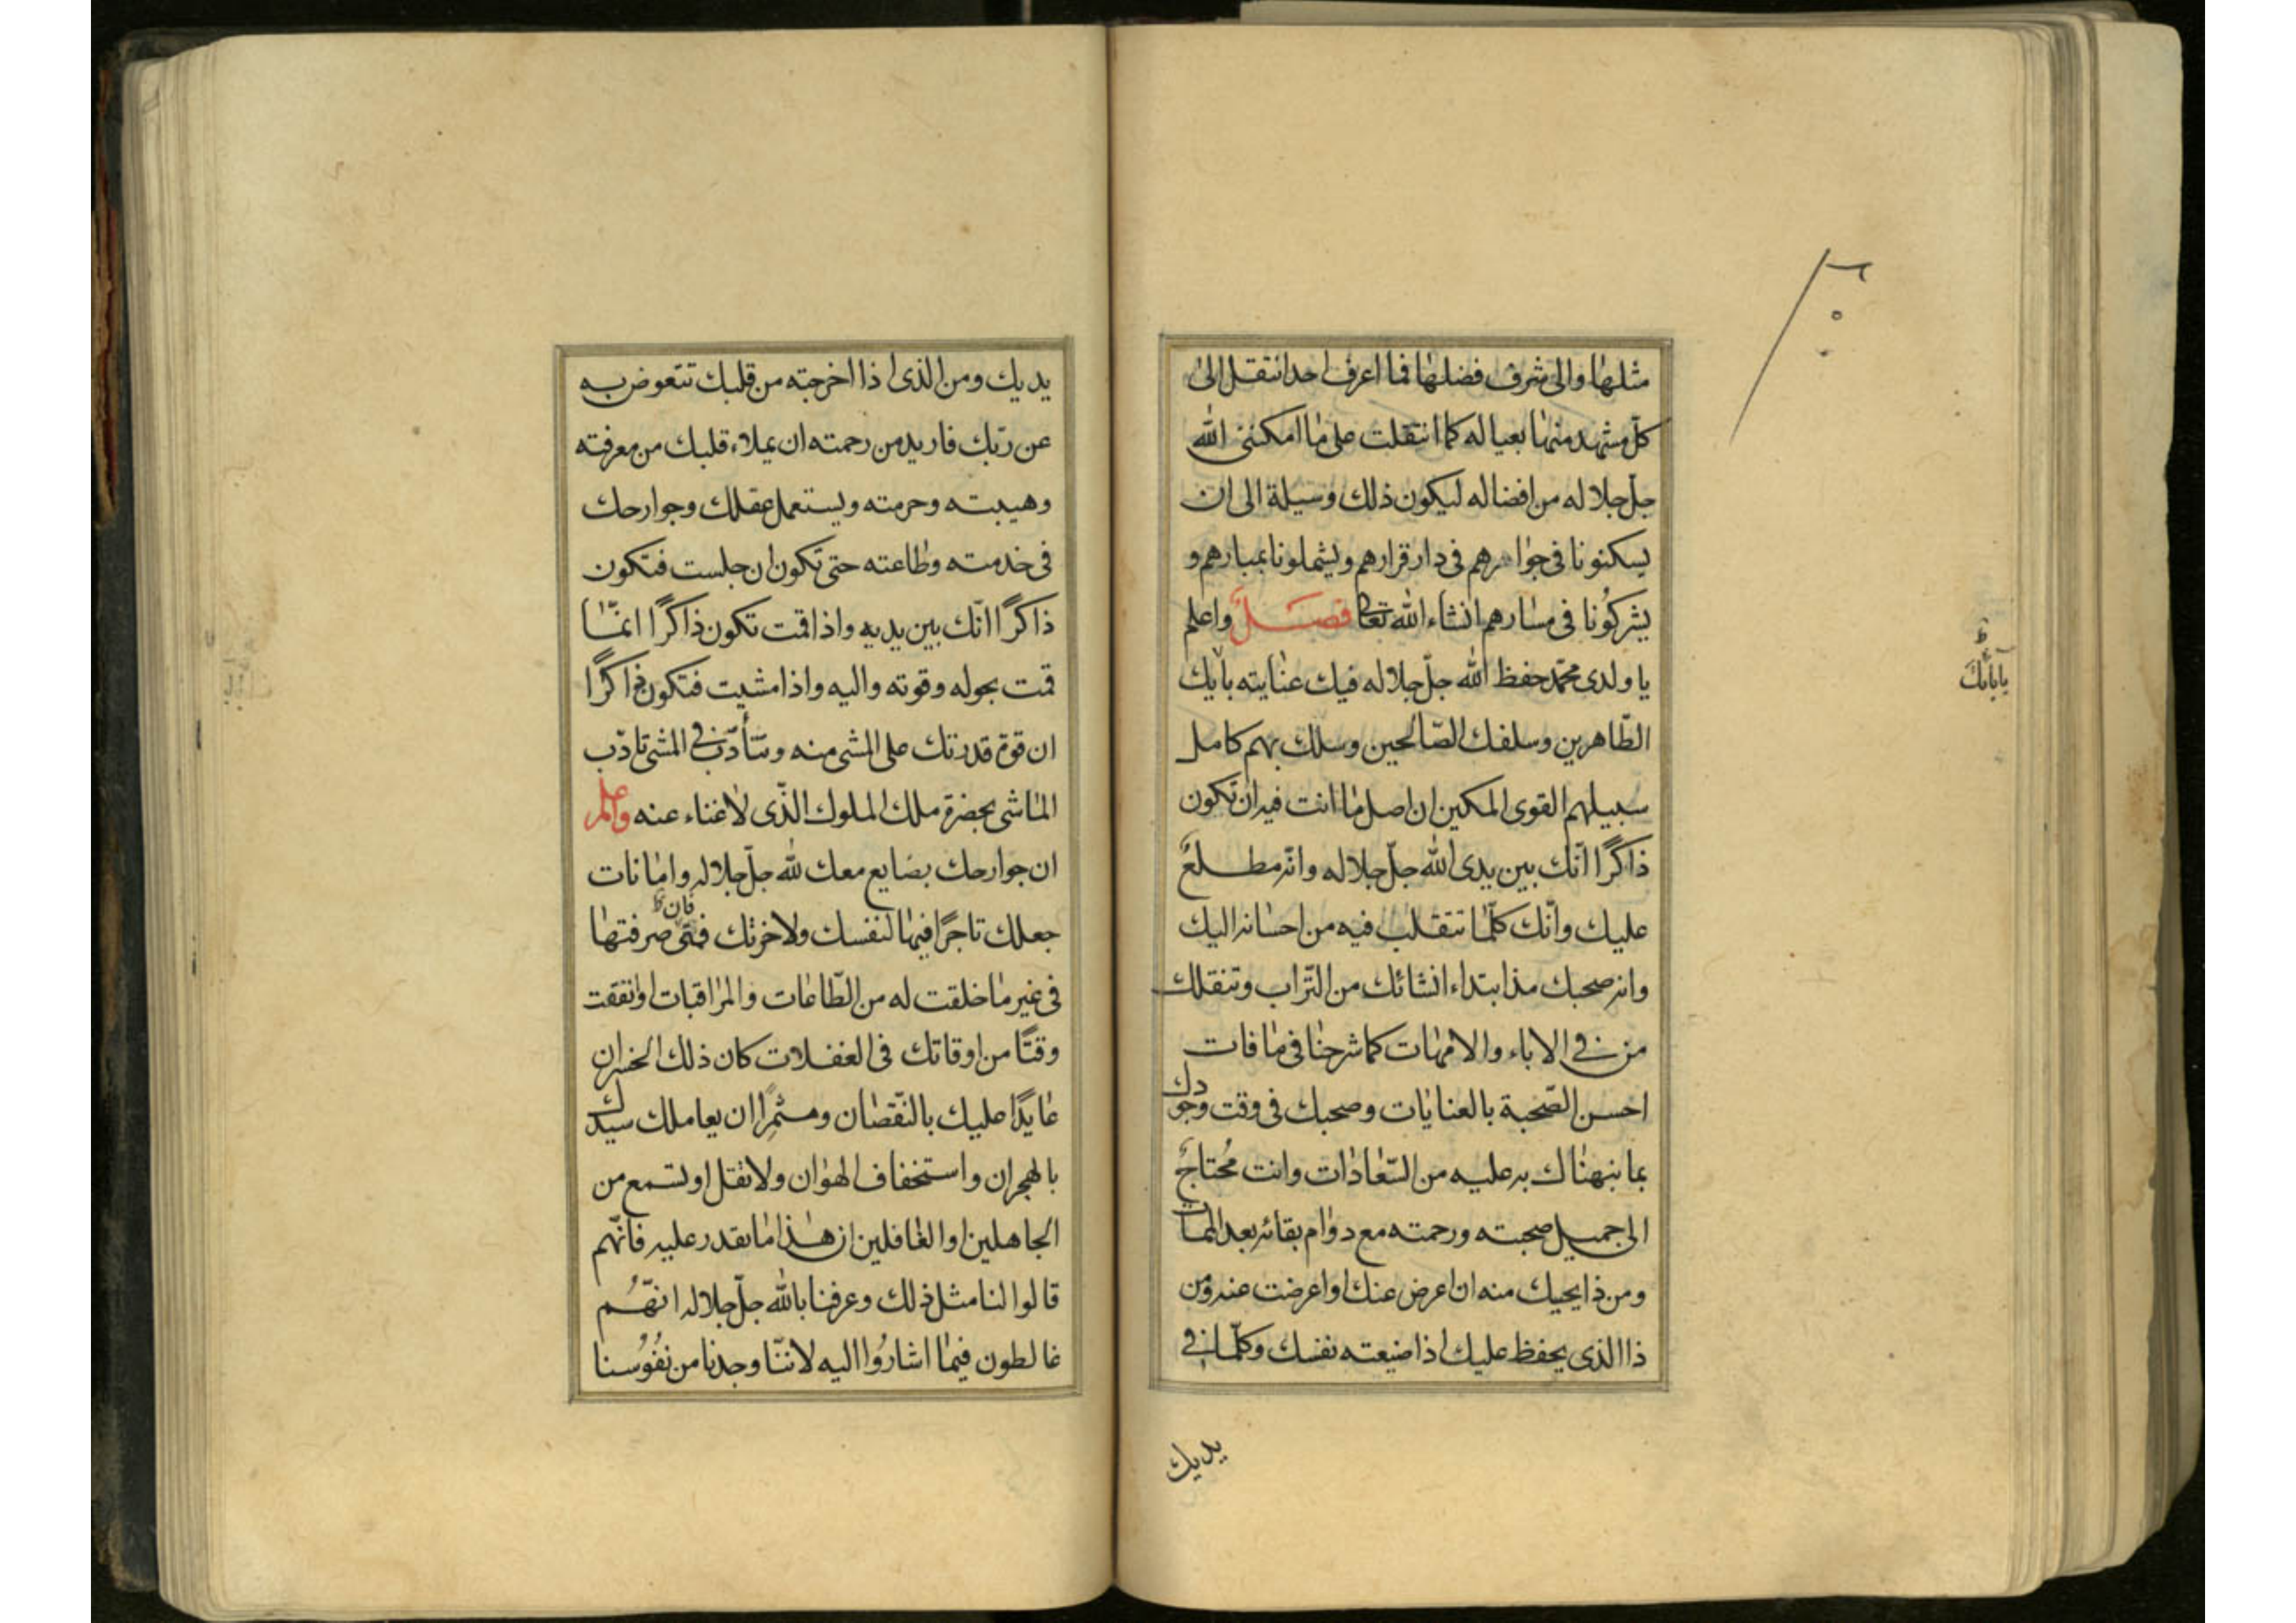 مثلها والى شرف فضلها فما اعرف احدا انتقل الى
كلّ مشهد منها بعياله كما انتقلت على ما امكننى الله
جلّ جلاله من افضاله ليكون ذلك وسيلة الى ان
يسكنونا فى جوارهم فى دار قرارهم ويشملونا بمبارهم و
يشركُونا فى مسارهم انشاء الله تعا فصــلٌ واعلم
يا ولدى محمّد حفظ الله جلّ جلاله فيك عنايته بابٰيك
الطّاهرين وسلفك الصّالحين وسلك بهم كامل
سبيلهم القوى المكين ان اصل ما انت فيه ان تكون
ذاكرًا انّك بين يدى الله جلّ جلاله وانّه مطــلعٌ
عليك وانّك كلّما تتقلب فيه من احسانه اليك
وانه صحبك مذ ابتداء انشائك من التّراب وتنقلك
من فى الاباء والامهات كما شرحنا فى ما فات
احسن الصّحبة بالعنايات وصحبك فى وقت وجودك
بما نبهناك به عليه من السّعادات وانت مُحتاجٌ
الى جميل صحبته ورحمته مع دوام بقائه بعد الممات
ومن ذا يحيك منه ان اعرض عنك او اعرضت عنه ومن
ذا الذى يحفظ عليك اذا ضيعته نفسك وكلّما فى
يديك
ظ
يابابك
يديك ومن الذى اذا اخرجته من قلبك تتعوض به
عن ربّك فاريد من رحمته ان يملاء قلبك من معرفته
وهيبته وحرمته ويستعمل عقلك وجوارحك
فى خدمته وطاعته حتى تكون ان جلست فتكون
ذاكرًا انّك بين يديه واذا قمت تكون ذاكرًا انمّا
قمت بحوله وقوته واليه واذا مشيت فتكون ذاكرًا
ان قوة قدرتك على المشى منه وتتأدّب فى المشى تادّب
الماشى بحضرة ملك الملوك الّذى لا غناء عنه واعلم
ان جوارحك بضايع معك لله جلّ جلاله وامانات
جعلك تاجرًا فيها لنفسك ولاخرتك فمتى صرفتها
فان ظ
فى غير ما خلقت له من الطّاعات والمراقبات او انفقت
وقتًا من اوقاتك فى الغفلات كان ذلك الخسران
عايدًا عليك بالنّقصان ومثمرًا ان يعاملك سيدك
بالهجران واستخفاف الهوان ولا تقل او تسمع من
الجاهلين او الغافلين ان هذا ما نقدر عليه فانّهم
قالوا لنا مثل ذلك وعرفنا بالله جلّ جلاله انهُّــم
غالطون فيما اشارُوا اليه لاننّا وجدنا من نفُوُسنا